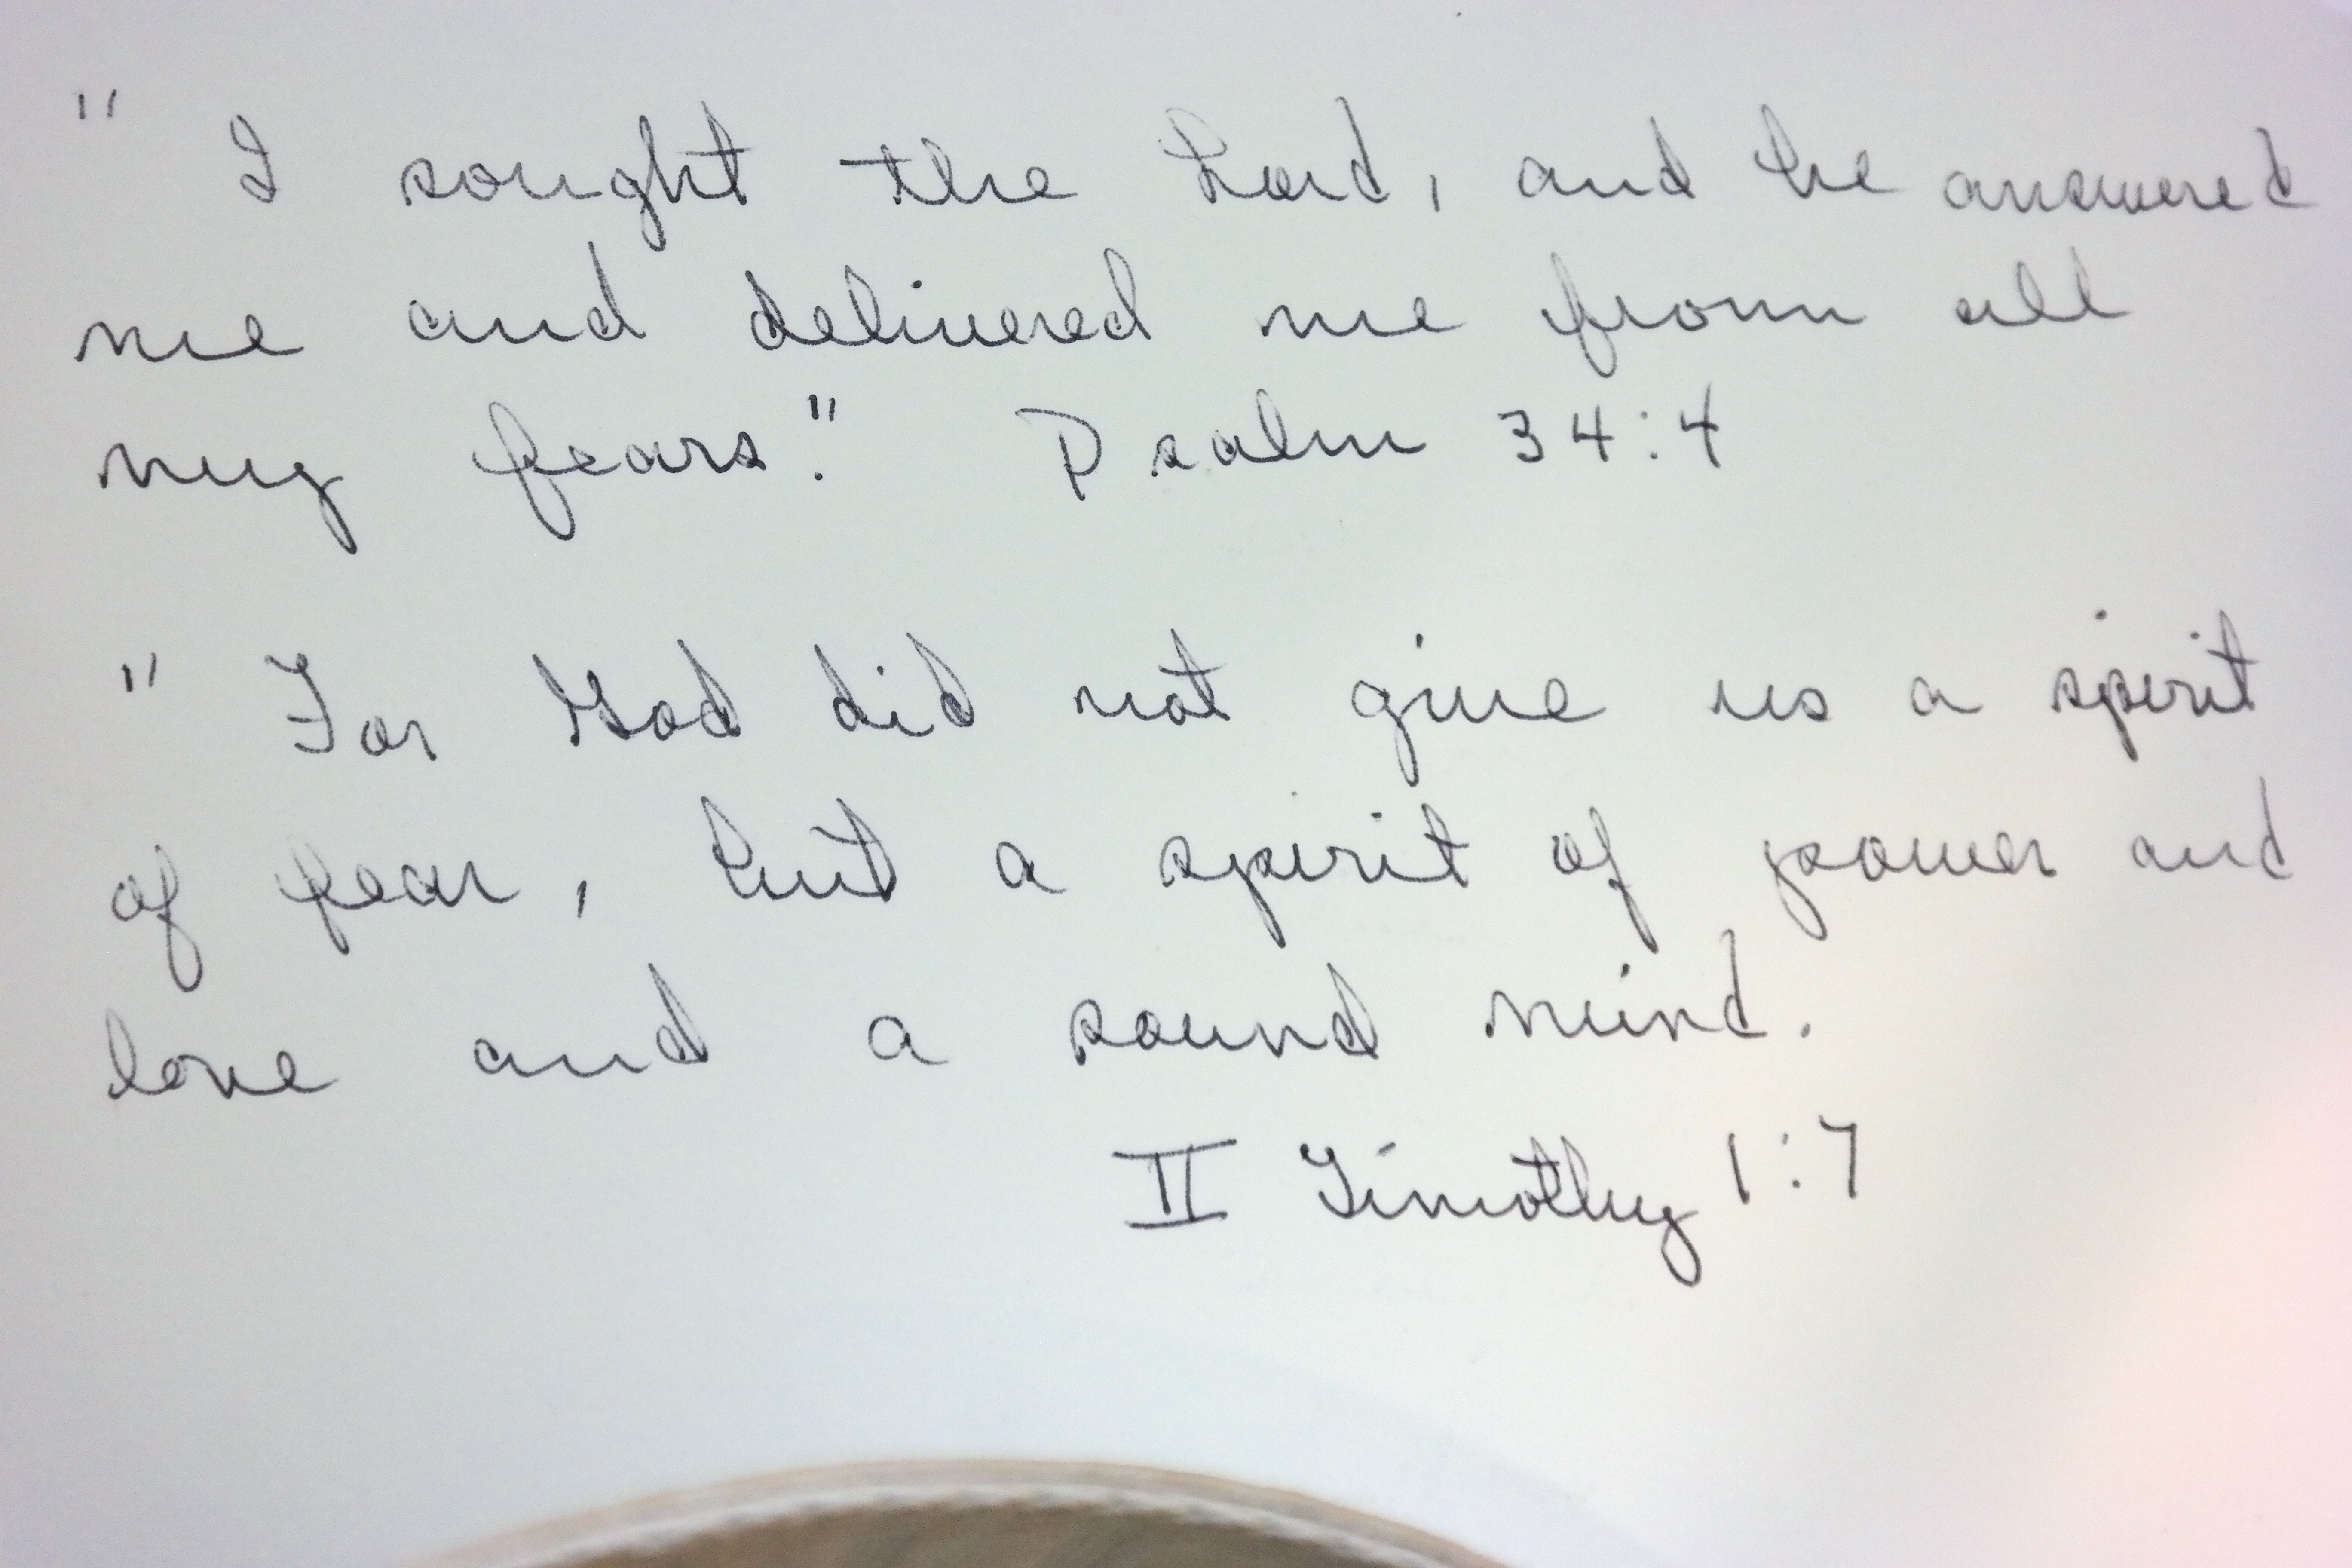 " I sought the Lord, and he answered
me and delivered me from all
my fears." Psalm 34:4
" For God did not give us a spirit
of fear, but a spirit of power and
love and a sound mind.
II Timothy 1:7